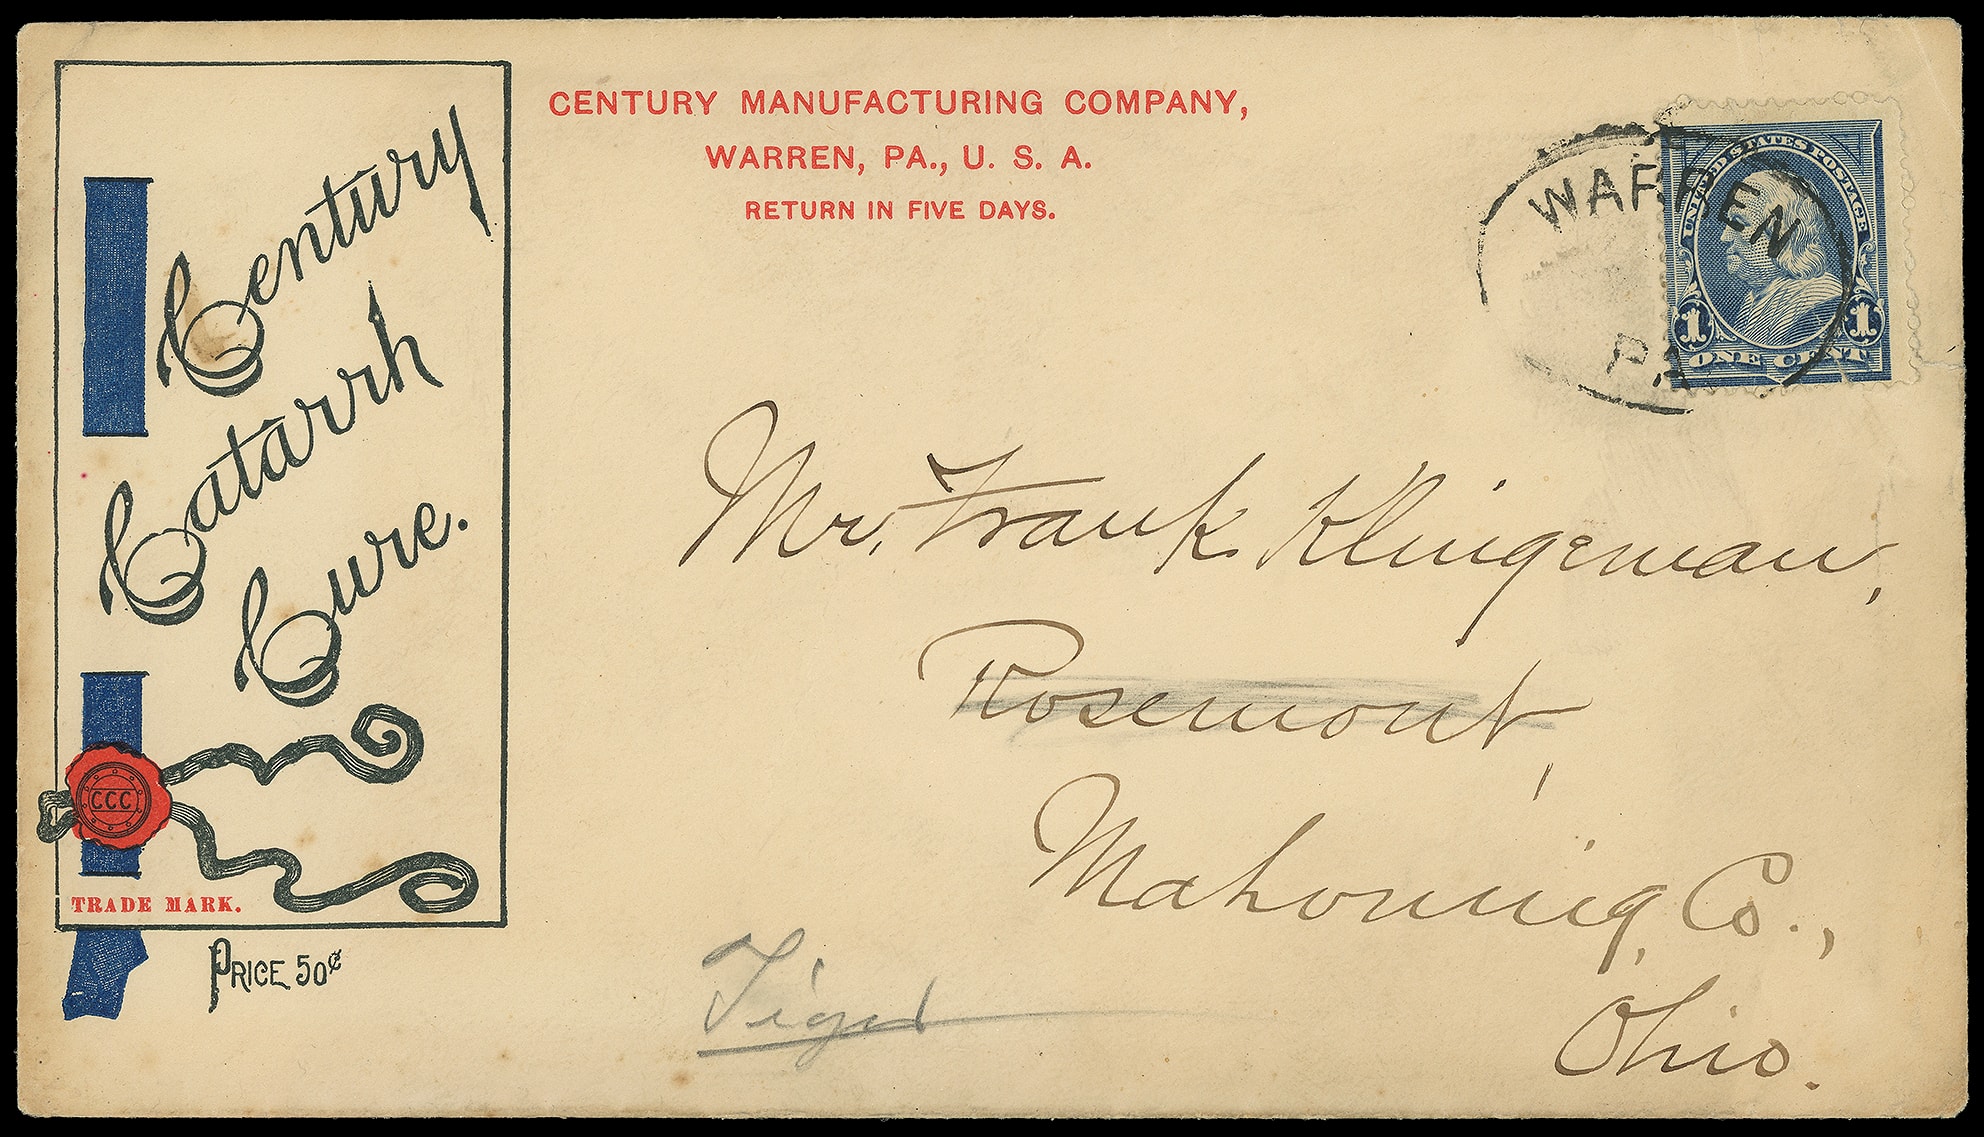 CENTURY MANUFACTURING COMPANY,
WARREN, PA., U. S. A.
RETURN IN FIVE DAYS.
Century
Catarrh
Cure.
CCC
TRADE MARK.
PRICE 50¢
WARREN
PA
UNITED STATES POSTAGE
1 1
ONE CENT
Mr. Frank Klingeman,
Rosemont,
Mahoning Co.,
Ohio.